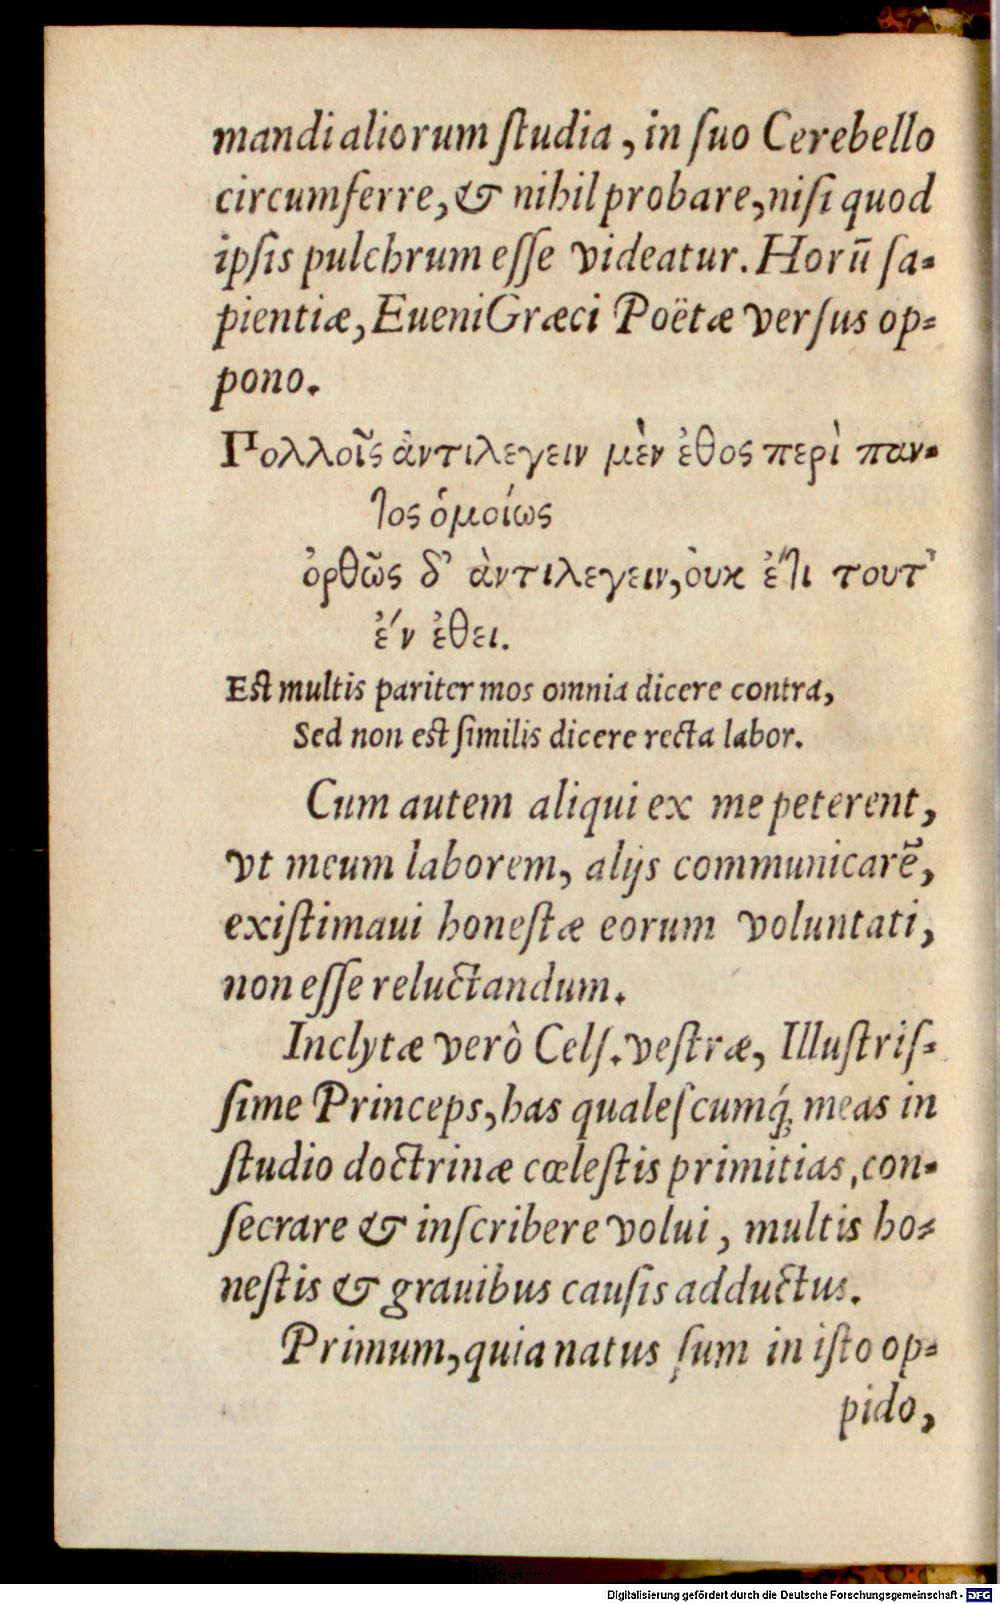 mandi aliorum ſtudia, in ſuo Cerebello
circumferre, & nihil probare, niſi quod
ipſis pulchrum eſſe videatur. Horū ſa-
pientiæ, Eueni Græci Poëtæ verſus op-
pono.
Πολλοῖς ἀντιλεγειν μὲν ἐθος περὶ παν-
τος ὁμοίως
ὀρθῶς δ' ἀντιλεγειν, ὀυκ ἔτι τουτ'
ἔν ἐθει.
Eſt multis pariter mos omnia dicere contra,
Sed non eſt ſimilis dicere recta labor.
Cum autem aliqui ex me peterent,
vt meum laborem, alijs communicarē,
exiſtimaui honeſtæ eorum voluntati,
non eſſe reluctandum.
Inclytæ verò Celſ. veſtræ, Illuſtriſ-
ſime Princeps, has qualeſcumq́; meas in
ſtudio doctrinæ cœleſtis primitias, con-
ſecrare & inſcribere volui, multis ho-
neſtis & grauibus cauſis adductus.
Primum, quia natus ſum in iſto op-
pido,
Digitalisierung gefördert durch die Deutsche Forschungsgemeinschaft - DFG